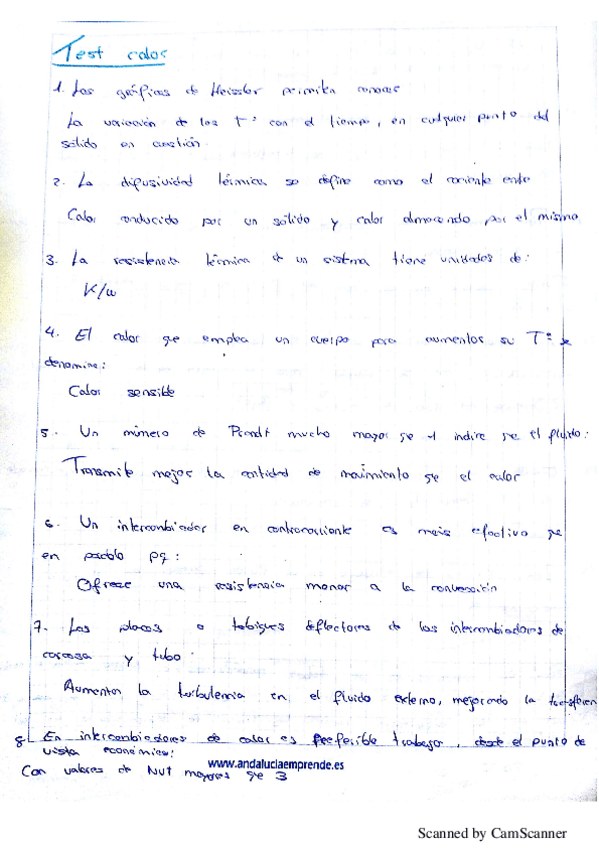 Test calor
1. Las gráficas de Heissler permiten conocer
La variación de los Tª con el tiempo, en cualquier punto del
sólido en cuestión.
2. La difusividad térmica se define como el cociente ente
Calor conducido por un sólido y calor almacendo por el mismo
3. La resistencia térmica de un sistema tiene unidades de:
K/w
4. El calor que emplea un cuerpo para aumentar su Tª se
denomina:
Calor sensible
5. Un número de Prandt mucho mayor que 1 indica que el fluido:
Transmite mejor la cantidad de movimiento que el calor
6. Un intercambiador en contracorriente es más efectivo que
en paralelo pq:
Ofrece una resistencia menor a la convección
7. Las placas o tabiques deflectores de los intercambiadores de
carcasa y tubo
Aumentan la turbulencia en el fluido externo, mejorando la
8. En intercambiadores de calor es preferible trabajar, desde el punto de
vista económico:
www.andaluciaemprende.es
Con valores de NUT mayores que 3
Scanned by CamScanner